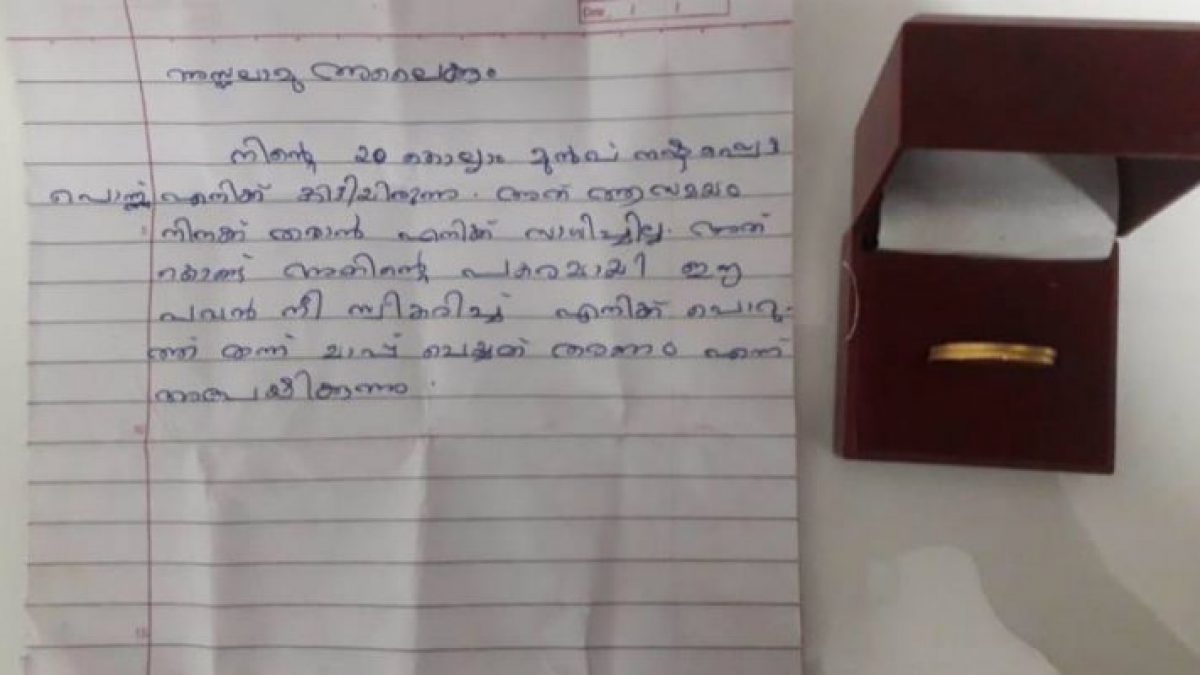 Date
അസ്സലാമു അലൈക്കും
നിന്റെ 20 കൊല്ലം മുൻപ് നഷ്ടപ്പെട്ട
പൊന്ന് എനിക്ക് കിട്ടിയിരുന്നു. അത് ആ സമയം
നിനക്ക് തരാൻ എനിക്ക് സാധിച്ചില്ല. അത്
കൊണ്ട് അതിന്റെ പകരമായി ഈ
പവൻ നീ സ്വീകരിച്ച് എനിക്ക് പൊറു-
ത്ത് തന്ന് മാപ്പ് ചെയ്ത് തരണം എന്ന്
അപേക്ഷിക്കുന്നു.